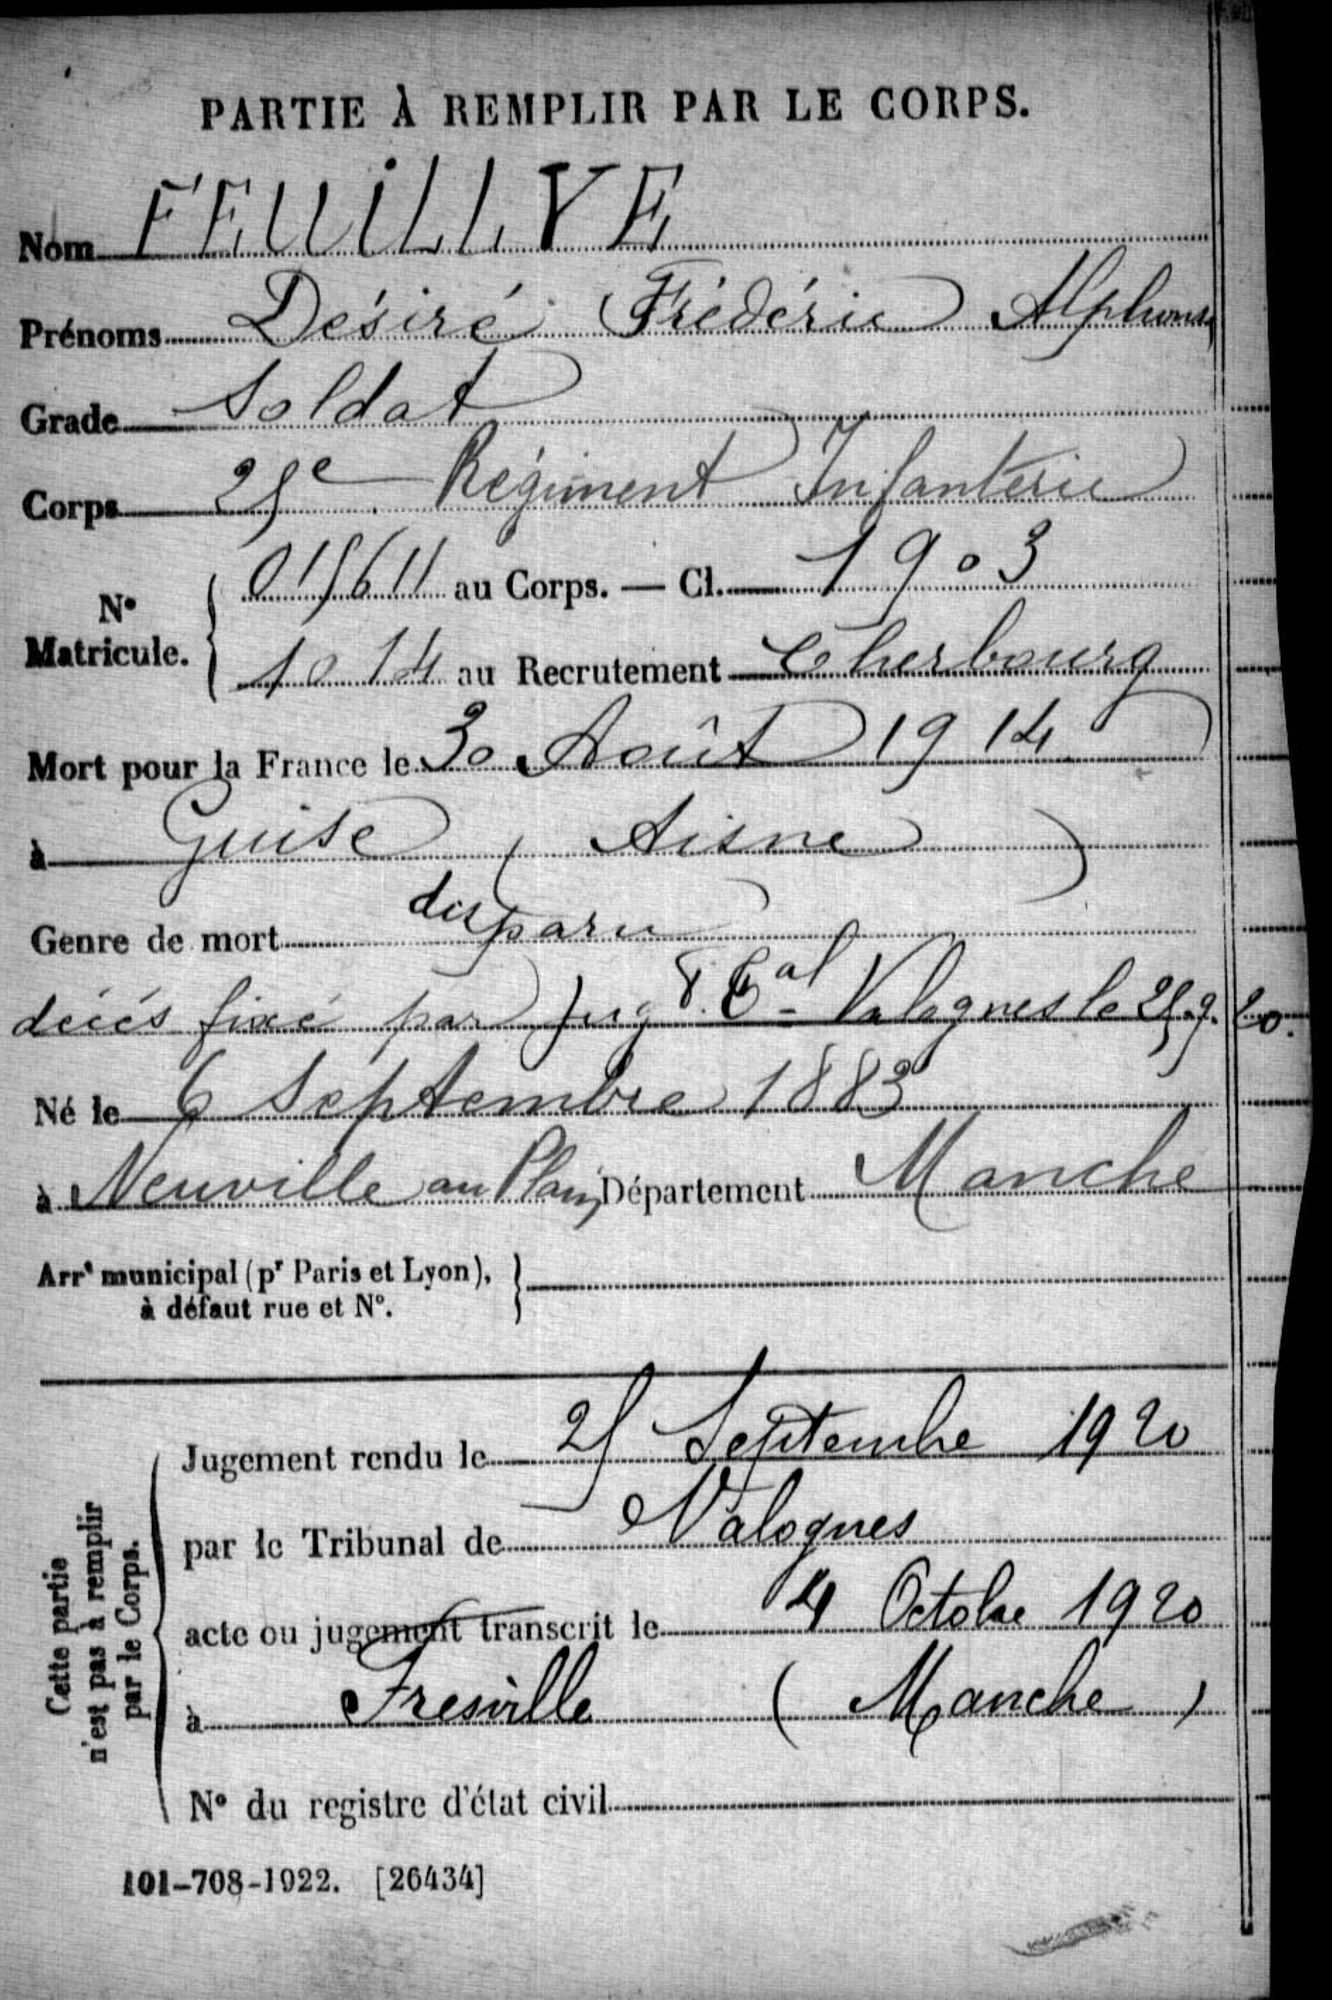 PARTIE À REMPLIR PAR LE CORPS.
Nom FEUILLYE
Prénoms Désiré Frédéric Alphonse
Grade Soldat
Corps 25e Régiment Infanterie
N° Matricule. 015611 au Corps. — Cl. 1903
1014 au Recrutement Cherbourg
Mort pour la France le 30 Août 1914
à Guise (Aisne)
Genre de mort disparu
décés fixé par Jug t. Tal Valognes le 25.9.20.
Né le 6 Septembre 1883
à Neuville au Plain Département Manche
Arrt municipal (pr Paris et Lyon),
à défaut rue et N°.
Cette partie n'est pas à remplir par le Corps.
Jugement rendu le 25 Septembre 1920
par le Tribunal de Valognes
acte ou jugement transcrit le 4 Octobre 1920
à Fresville (Manche)
N° du registre d'état civil
101-708-1922. [26434]